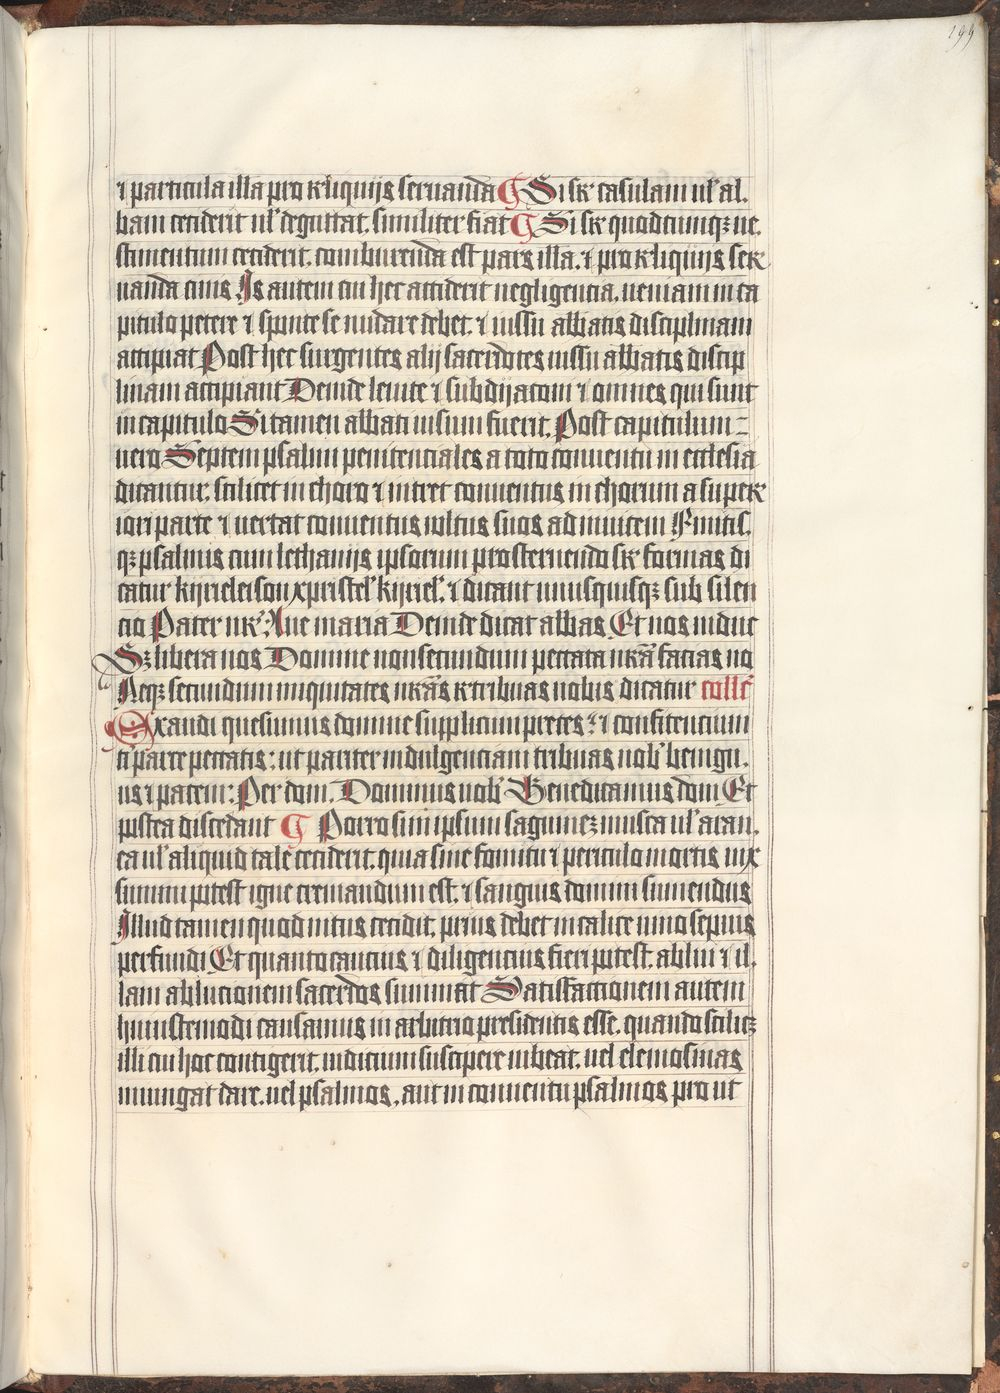 199
⁊ particula illa pro reliquijs seruanda ¶ Si sr̄ casulam ul' al.
bam ceciderit ul' deguttat. similiter fiat ¶ Si sr̄ quodcumqꝫ ue.
stimentum ceciderit. comburenda est pars illa. ⁊ pro reliquijs ser
uanda cinis. Is autem cui hec acciderit negligencia. ueniam in ca
pitulo petere ⁊ sponte se nudare debet. ⁊ iussu abbatis disciplinam
accipiat Post hec surgentes alij sacerdotes iussu abbatis discip
linam accipiant Deinde leuite ⁊ subdijaconi ⁊ omnes qui sunt
in capitulo Si tamen abbati uisum fuerit. Post capitulum
uero Septem psalmi penitenciales a toto conuentu in ecclesia
dicantur; scilicet in choro ⁊ intret conuentus in chorum a super
iori parte ⁊ uertat conuentus uultus suos ad inuicem Finitis.
qꝫ psalmis cum lethanijs ipsorum prosternendo sr̄ formas di
catur kijrieleison xpristel' kijriel'. ⁊ dicant unusquisqꝫ sub silen
cio Pater nr̄. Aue maria Deinde dicat abbas Et nos induc
Sꝫ libera nos Domine non secundum peccata nr̄a facias no
Neqꝫ secundum iniquitates nr̄as retribuas nobis dicatur coll'e
Exaudi quesumus domine supplicum preces. ⁊ confitencium
ti parce peccatis: ut pariter indulgenciam tribuas nob' benigu.
us ⁊ pacem: Per dom. Dominus nob' Benedicamus dom Et
postea discedant ¶ Porro si in ipsum sanguinez musca ul' aran.
ea ul' aliquid tale ceciderit. quia sine fomitu ⁊ periculo mortis uix
sumitu potest igne cremandum est. ⁊ sanguis domini sumendus
Illud tamen quod intus cecidit. prius debet in calice uino sepius
perfundi Et quanto caucius ⁊ diligencius fieri potest. ablui ⁊ il.
lam ablucionem sacerdos summat Satisfactionem autem
huiuscemodi causamus in arbitrio presidentis esse. quando scilicꝫ
illi cui hoc contigerit. iudicium suscipere iubeat. uel elemosinas
iniungat dare. uel psalmos. aut in conuentu psalmos pro ut